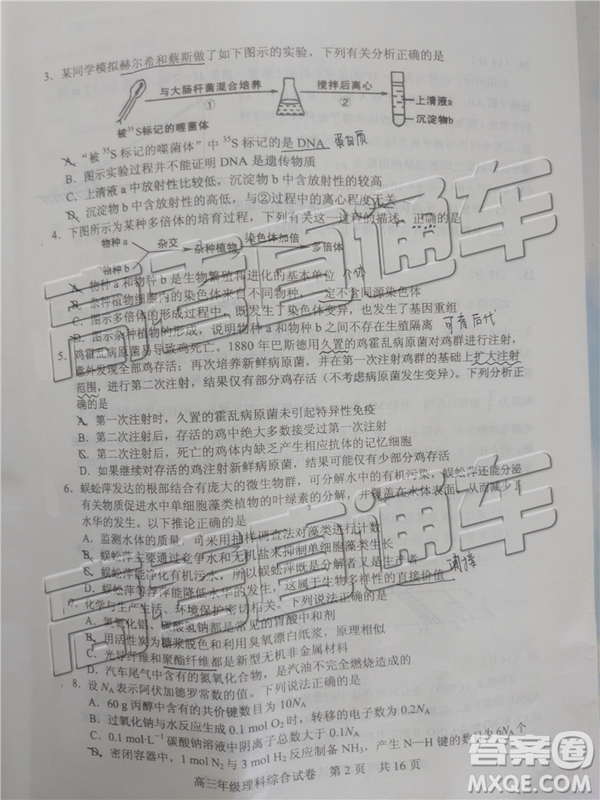 3、某同学模拟赫尔希和蔡斯做了如下图示的实验，下列有关分析正确的是
与大肠杆菌混合培养 ① 搅拌后离心 ② 上清液a
沉淀物b
被³⁵S标记的噬菌体
A. “被³⁵S标记的噬菌体”中³⁵S标记的是DNA 蛋白质
B. 图示实验过程并不能证明DNA是遗传物质
C. 上清液a中放射性比较低，沉淀物b中含放射性的较高
D. 沉淀物b中含放射性的高低，与②过程中的离心程度
4、下图所示为某种多倍体的培育过程，下列有关这一过程的描述，正确的是
物种a 杂交 杂种植物 染色体加倍 多倍体
物种b
A. 物种a和物种b是生物繁殖和进化的基本单位
B. 杂种植物细胞内的染色体来自不同物种，一定不含同源染色体
C. 图示多倍体的形成过程中，既发生了染色体变异，也发生了基因重组
D. 图示杂种植物的形成，说明物种a和物种b之间不存在生殖隔离 可育后代
5、鸡霍乱病原菌易导致鸡死亡。1880年巴斯德用久置的鸡霍乱病原菌对鸡群进行注射，
意外发现全部鸡存活；再次培养新鲜病原菌，并在第一次注射鸡群的基础上扩大注射
范围，进行第二次注射，结果仅有部分鸡存活（不考虑病原菌发生变异）。下列分析正
确的是
A. 第一次注射时，久置的霍乱病原菌未引起特异性免疫
B. 第二次注射后，存活的鸡中绝大多数接受过第一次注射
C. 第二次注射后，死亡的鸡体内缺乏产生相应抗体的记忆细胞
D. 如果继续对存活的鸡注射新鲜病原菌，结果还会有部分鸡死亡
6、蜈蚣萍发达的根部结合有庞大的微生物群，可分解水中的有机污染，蜈蚣萍还能分泌
有关物质促进水中单细胞藻类植物的叶绿素的分解，并覆盖在水体表面，从而减少了
水华的发生。以下推论正确的是
A. 监测水体的质量，可采用抽样调查法对藻类进行计数
B. 蜈蚣萍主要通过竞争水和无机盐来抑制单细胞藻类生长
C. 蜈蚣萍能净化有机污水，所以蜈蚣萍既是分解者又是生产者
D. 蜈蚣萍等浮萍能降低水华的发生，这属于生物多样性的直接价值 间接
7、化学与生产生活、环境保护密切相关。下列说法正确的是
A. 氢氧化铝、碳酸氢钠都是常见的胃酸中和剂
B. 用活性炭为糖浆脱色和利用臭氧漂白纸浆，原理相似
C. 光导纤维和聚酯纤维都是新型无机非金属材料
D. 汽车尾气中含有的氮氧化合物，是汽油不完全燃烧造成的
8、设Nₐ表示阿伏加德罗常数的值。下列说法正确的是
A. 60 g丙醇中含有的共价键数目为10Nₐ
B. 过氧化钠与水反应生成0.1 mol O₂时，转移的电子数为0.2Nₐ
C. 0.1 mol·L⁻¹碳酸钠溶液中阴离子总数大于0.1Nₐ
D. 密闭容器中，1 mol N₂与3 mol H₂反应制备NH₃，产生N—H键的数目为6Nₐ个
高三年级理科综合试卷 第2页 共16页
高考直通车
高考直通车
答案圈
MXQE.COM